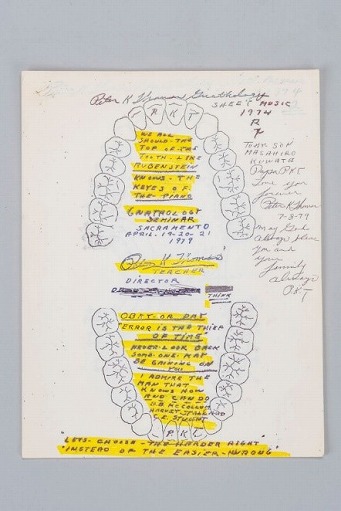 Peter K Thomas Gnathology
SHEET MUSIC
1974
R
PKT
WE ALL
SHOULD - THE
TOP OF THE
TOOTH - LIKE
RUBENSTEIN
KNOWS - THE
KEYES OF
THE PIANO
GNATHOLOGY
SEMINAR
SACRAMENTO
APRIL - 19-20-21
1979
Peter K Thomas
TEACHER
DIRECTOR
THINK
OBEY - OR PAY
"ERROR IS THE THIEF
OF TIME
NEVER LOOK BACK
SOME ONE MAY
BE GAINING ON
YOU
I ADMIRE THE
MAN THAT
KNOWS HOW
AND CAN DO
B.B. McCOLLUM
HARVEY STALLARD
C.E. STUART
PKT
"LETS - CHOOSE - THE HARDER RIGHT
"INSTEAD OF THE EASIER - WRONG"
YOUR SON
MASAHIRO
KUWATA
Papa PKT
Love you
forever
Peter K Thomas
7-8-79
May God
always bless
you and
your
family
always
PKT